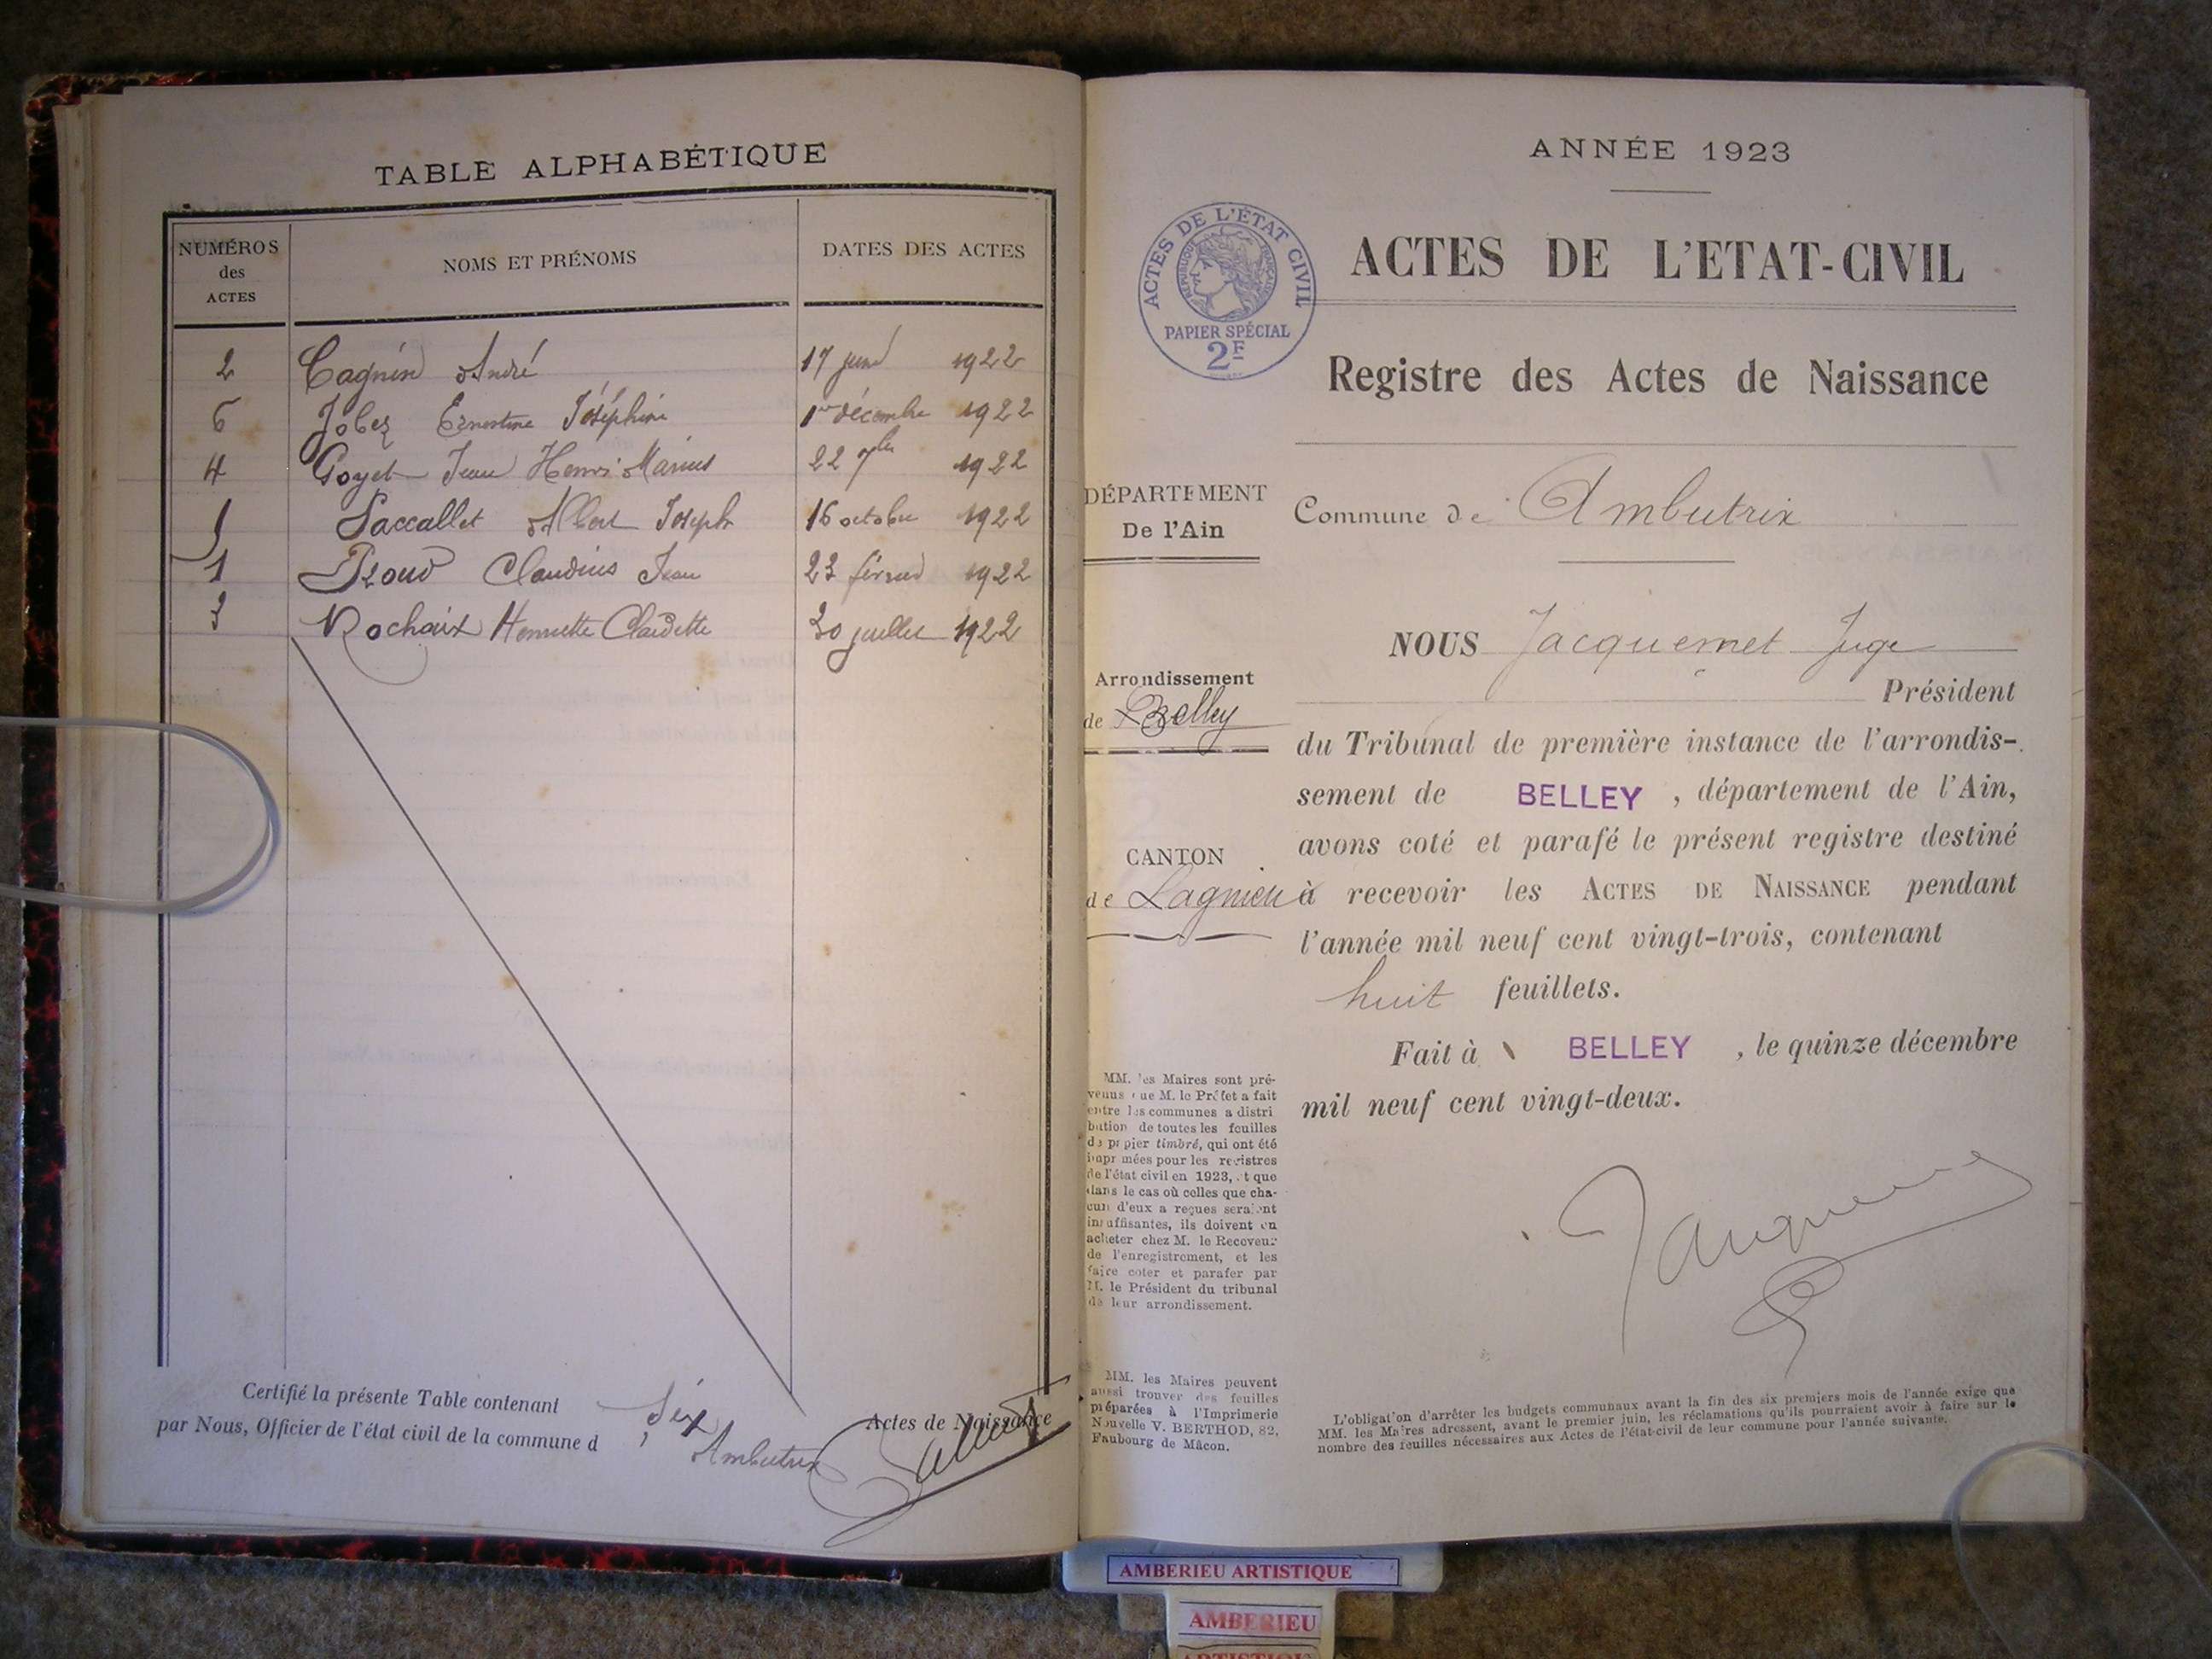 TABLE ALPHABÉTIQUE
NUMÉROS
des
ACTES
NOMS ET PRÉNOMS
DATES DES ACTES
2 Cagnin André 17 juin 1922
6 Jobez Ernestine Joséphine 1er décembre 1922
4 Goyet Jean Henri Marius 22 7bre 1922
5 Paccallet Albert Joseph 16 octobre 1922
1 Proud Claudius Jean 23 février 1922
3 Rochaix Henriette Claudette 30 juillet 1922
Certifié la présente Table contenant Six Actes de Naissance
par Nous, Officier de l'état civil de la commune d'Ambutrix
ANNÉE 1923
ACTES DE L'ÉTAT CIVIL
RÉPUBLIQUE FRANÇAISE
PAPIER SPÉCIAL
2F
ACTES DE L'ETAT-CIVIL
Registre des Actes de Naissance
DÉPARTEMENT
De l'Ain
Commune de Ambutrix
Arrondissement
de Belley
CANTON
de Lagnieu
NOUS Jacquemet Juge
Président
du Tribunal de première instance de l'arrondis-
sement de BELLEY, département de l'Ain,
avons coté et parafé le présent registre destiné
à recevoir les ACTES DE NAISSANCE pendant
l'année mil neuf cent vingt-trois, contenant
huit feuillets.
Fait à BELLEY, le quinze décembre
mil neuf cent vingt-deux.
Jacquemet
MM. les Maires sont pré-
venus que M. le Préfet a fait
entre les communes a distri
bution de toutes les feuilles
de papier timbré, qui ont été
imprimées pour les registres
de l'état civil en 1923, et que
dans le cas où celles que cha-
cun d'eux a reçues seraient
insuffisantes, ils doivent en
acheter chez M. le Receveur
de l'enregistrement, et les
faire coter et parafer par
M. le Président du tribunal
de leur arrondissement.
MM. les Maires peuvent
aussi trouver des feuilles
préparées à l'Imprimerie
Nouvelle V. BERTHOD, 82,
Faubourg de Mâcon.
L'obligation d'arrêter les budgets communaux avant la fin des six premiers mois de l'année exige que
MM. les Maires adressent, avant le premier juin, les réclamations qu'ils pourraient avoir à faire sur le
nombre des feuilles nécessaires aux Actes de l'état-civil de leur commune pour l'année suivante.
AMBERIEU ARTISTIQUE
AMBERIEU
ARTISTIQUE